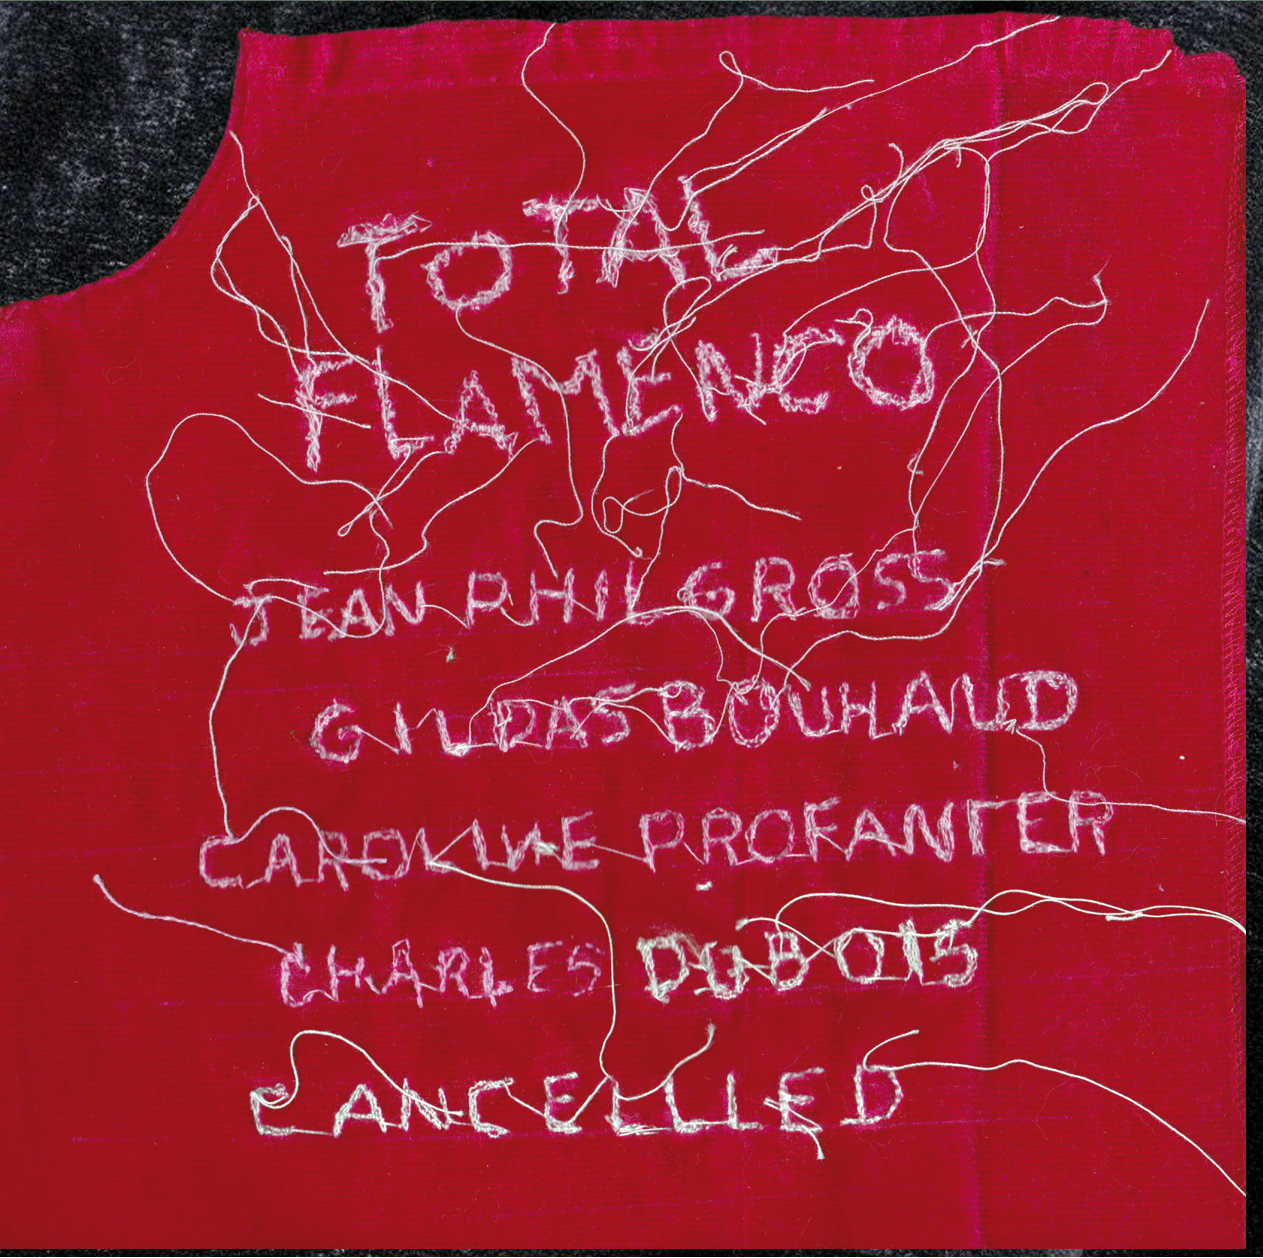 TOTAL
FLAMENCO
JEAN PHIL GROSS
GILDAS BOUHAUD
CAROLINE PROFANTER
CHARLES DUBOIS
CANCELLED